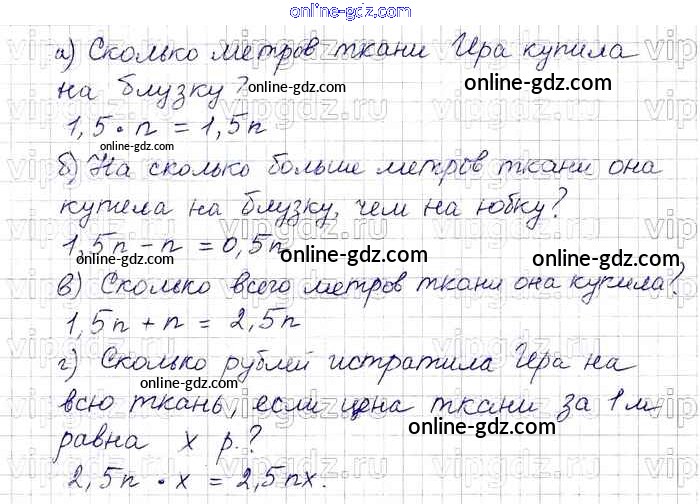 online-gdz.com
а) Сколько метров ткани Ира купила
на блузку?
online-gdz.com
online-gdz.com
1,5 · n = 1,5n
online-gdz.com
б) На сколько больше метров ткани она
купила на блузку, чем на юбку?
1,5n - n = 0,5n
online-gdz.com
online-gdz.com
online-gdz.com
в) Сколько всего метров ткани она купила?
1,5n + n = 2,5n
г) Сколько рублей истратила Ира на
online-gdz.com
всю ткань, если цена ткани за 1 м
равна x р.?
online-gdz.com
2,5n · x = 2,5nx.
online-gdz.com
vipgdz.ru